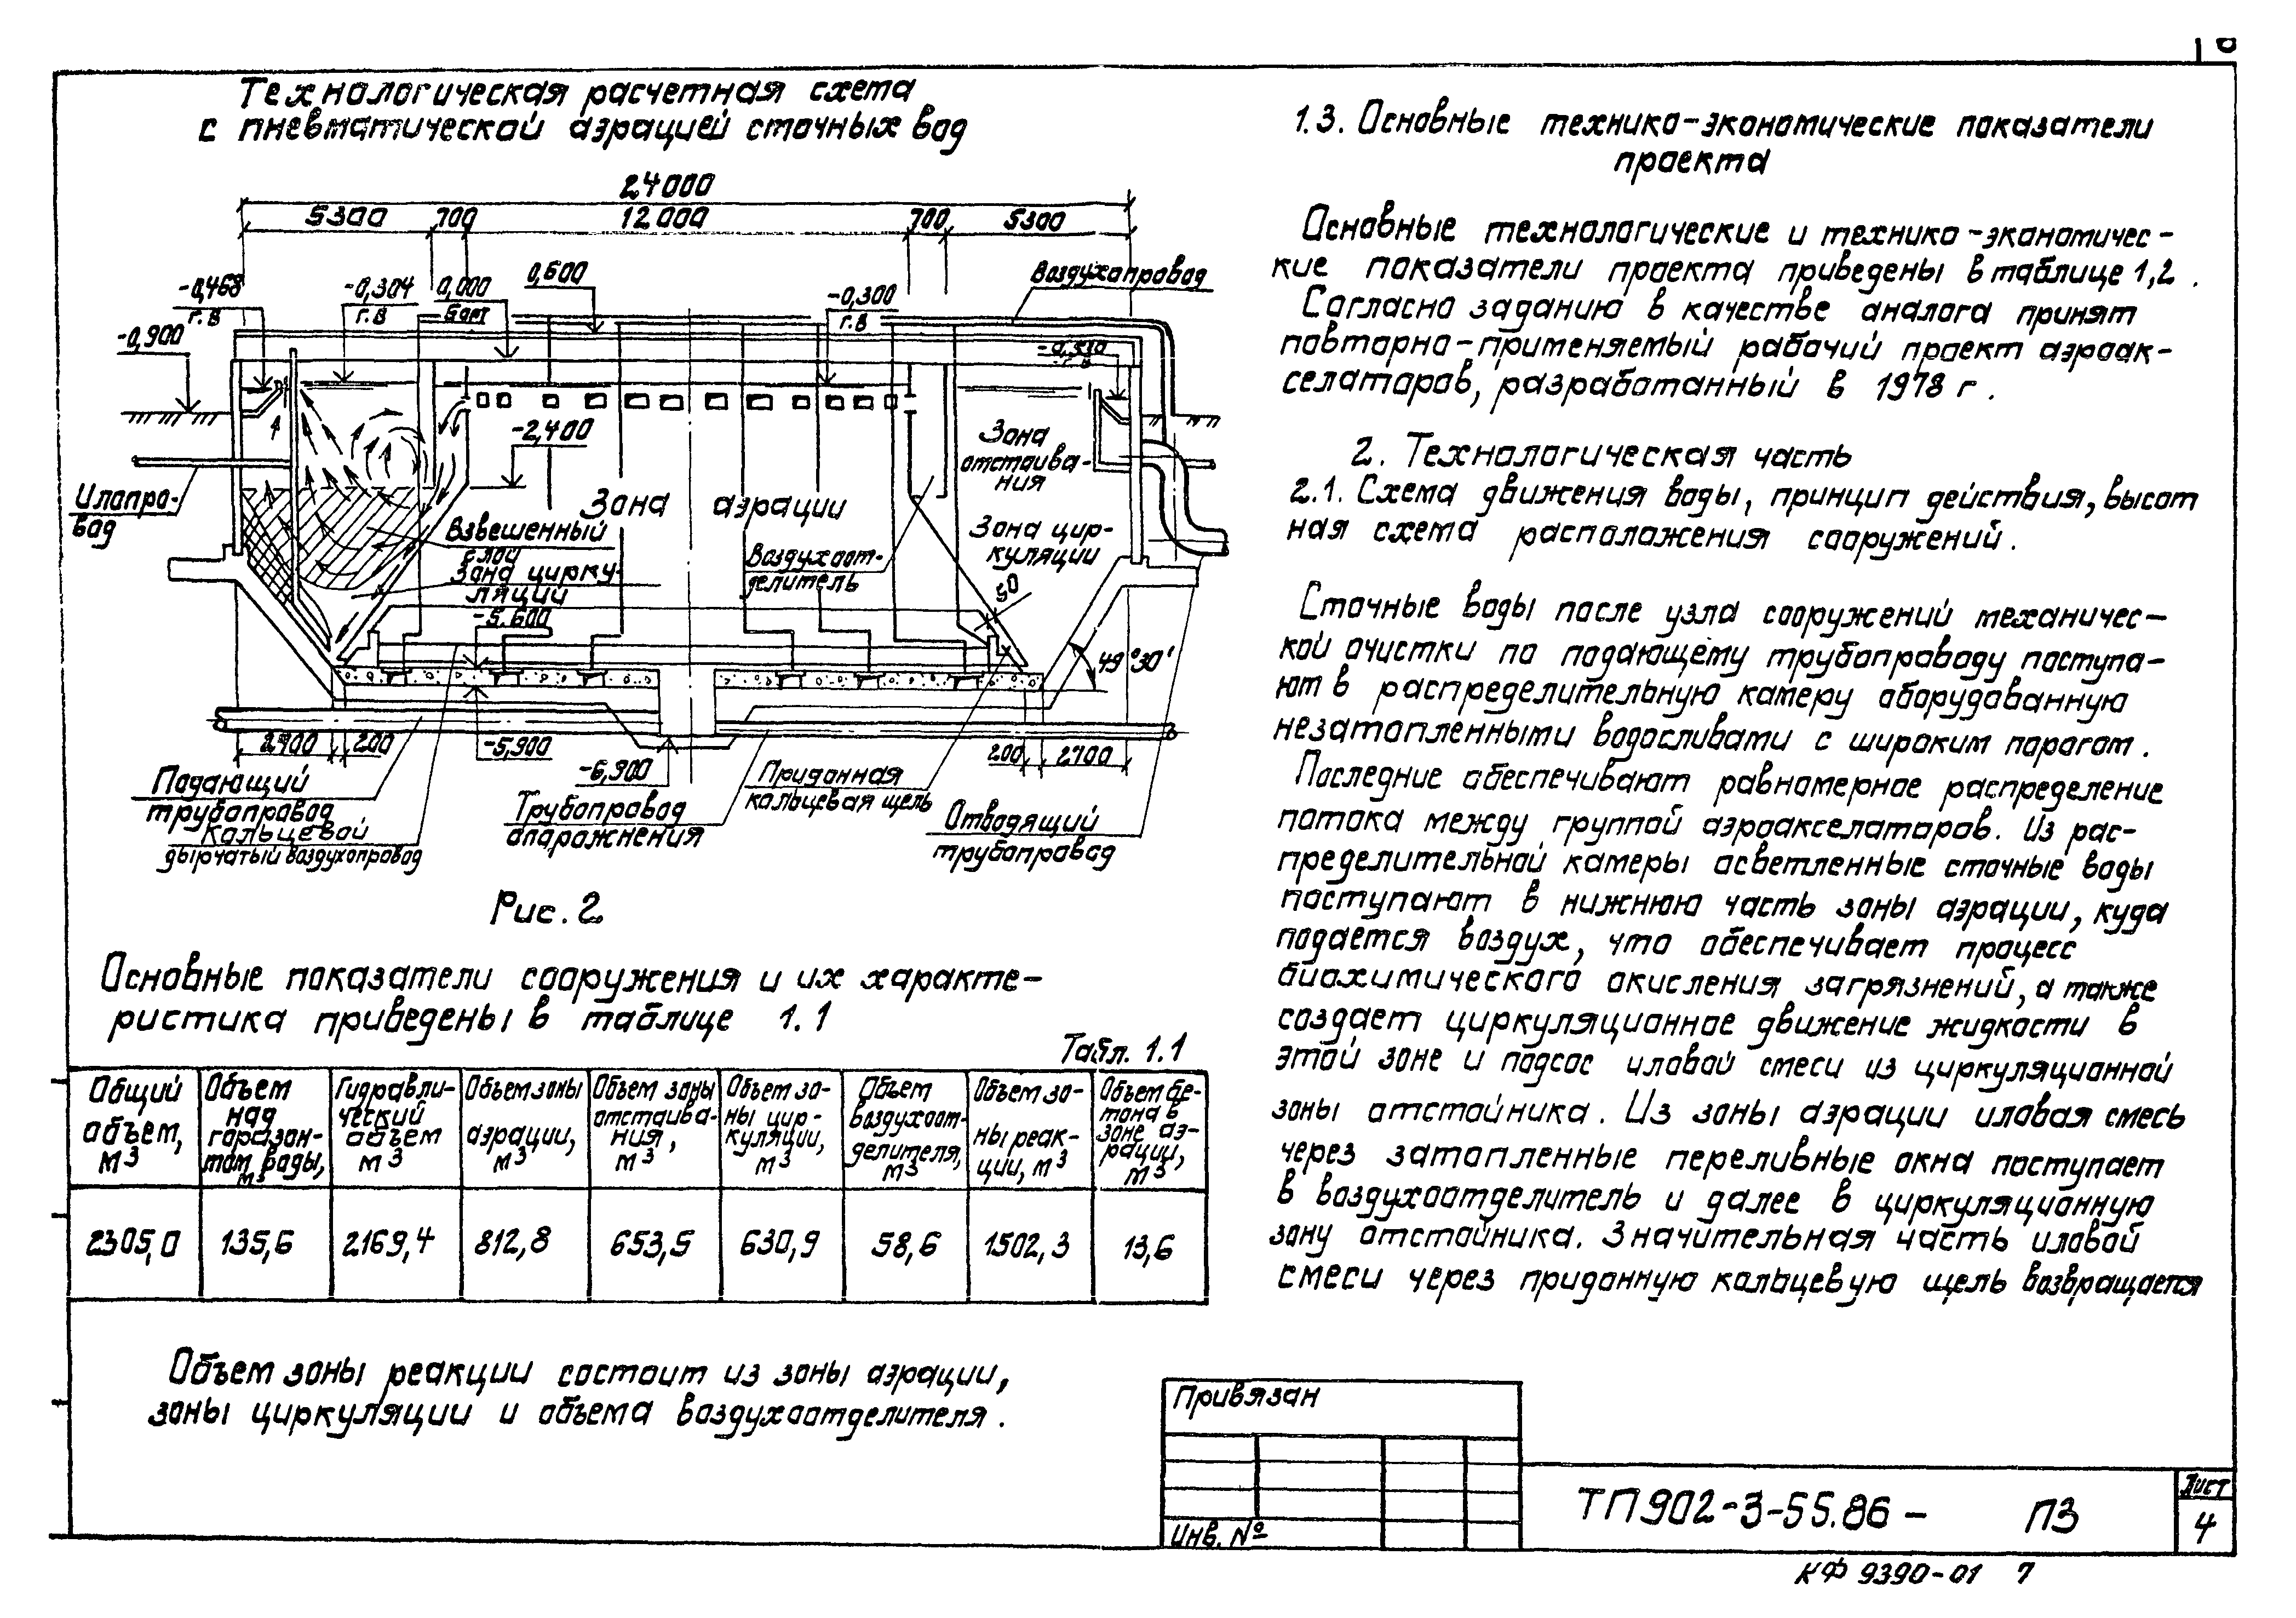 6
Технологическая расчетная схема
с пневматической аэрацией сточных вод
24000
5300 700 12.000 700 5300
-0,468
г.в
-0,304
г.в
0,000
0,600
-0,300
г.в
Воздухопровод
-0,900
-2,400
Зона
отстаива-
ния
Илопро-
вод
Зона аэрации
Взвешенный
слой
Зона цирку-
ляции
Воздухоот-
делитель
Зона цир-
куляции
50
-5.600
49°30'
200
-5,900
-6,900
200 2700
Подающий
трубопровод
Кольцевой
дырчатый воздухопровод
Трубопровод
опорожнения
Придонная
кольцевая щель
Отводящий
трубопровод
Рис. 2
Основные показатели сооружения и их характе-
ристика приведены в таблице 1.1
Табл. 1.1
Общий объем, м3
Объем над горизон-том воды, м3
Гидравли-ческий объем м3
Объем зоны аэрации, м3
Объем зоны отстаива-ния, м3
Объем зо-ны цир-куляции, м3
Объем воздухоот-делителя, м3
Объем зо-ны реак-ции, м3
Объем бе-тона в зоне аэ-рации, м3
2305,0 135,6 2169,4 812,8 653,5 630,9 58,6 1502,3 13,6
Объем зоны реакции состоит из зоны аэрации,
зоны циркуляции и объема воздухоотделителя.
1.3. Основные технико-экономические показатели
проекта
Основные технологические и технико-экономичес-
кие показатели проекта приведены в таблице 1,2.
Согласно заданию в качестве аналога принят
повторно-применяемый рабочий проект аэроак-
селаторов, разработанный в 1978 г.
2. Технологическая часть
2.1. Схема движения воды, принцип действия, высот
ная схема расположения сооружений.
Сточные воды после узла сооружений механичес-
кой очистки по подающему трубопроводу поступа-
ют в распределительную камеру оборудованную
незатопленными водосливами с широким порогом.
Последние обеспечивают равномерное распределение
потока между группой аэроакселаторов. Из рас-
пределительной камеры осветленные сточные воды
поступают в нижнюю часть зоны аэрации, куда
подается воздух, что обеспечивает процесс
биохимического окисления загрязнений, а также
создает циркуляционное движение жидкости в
этой зоне и подсос иловой смеси из циркуляционной
зоны отстойника. Из зоны аэрации иловая смесь
через затопленные переливные окна поступает
в воздухоотделитель и далее в циркуляционную
зону отстойника. Значительная часть иловой
смеси через придонную кольцевую щель возвращается
Привязан
Инв. №
ТП 902-3-55.86 - ПЗ
Лист
4
КФ 9390-01 7